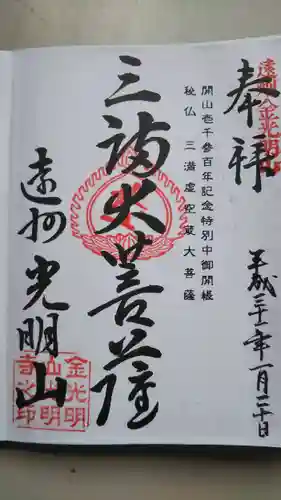 奉拝
平成三十一年一月二十日
開山壱千参百年記念特別中御開帳
秘仏 三満虚空蔵大菩薩
三満大菩薩
遠州 光明山
金光明
山光明
寺之印